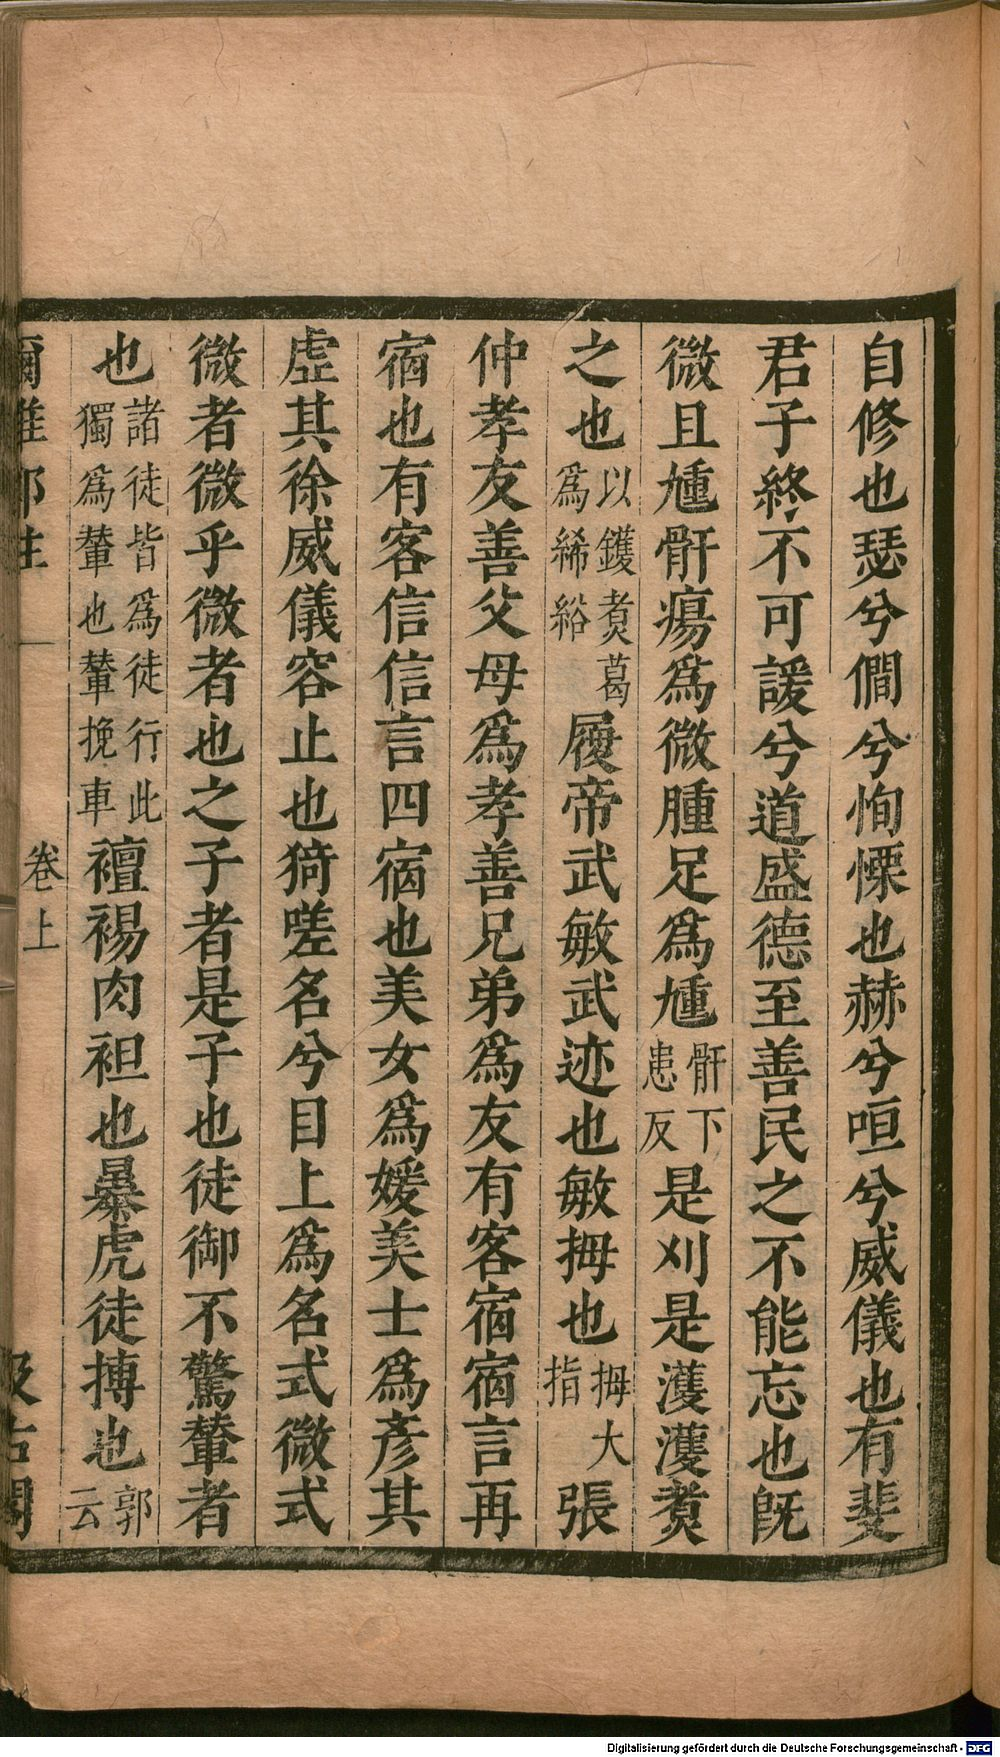 自修也瑟兮僩兮恂慄也赫兮咺兮威儀也有斐
君子終不可諼兮道盛德至善民之不能忘也旣
微且尰骭瘍爲微腫足爲尰骭下患反是刈是濩濩煑
之也以鑊煑葛爲絺綌履帝武敏武迹也敏拇也拇大指張
仲孝友善父母爲孝善兄弟爲友有客宿宿言再
宿也有客信信言四宿也美女爲媛美士爲彥其
虛其徐威儀容止也猗嗟名兮目上爲名式微式
微者微乎微者也之子者是子也徒御不驚輦者
也諸徒皆爲徒行此獨爲輦也輦挽車襢裼肉袒也暴虎徒搏也郭云
爾雅郭注 卷上 汲古閣
Digitalisierung gefördert durch die Deutsche Forschungsgemeinschaft - DFG